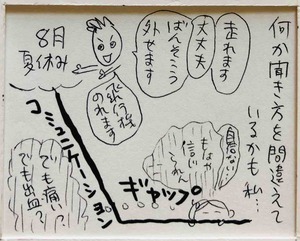 何か聞き方を間違えて
いるかも私…
走れます
大丈夫
ばんそこう
外せます
飛行機
のれます
8月
夏休み
コミュニケーション
ギャップ
自信ない
もはや
でも痛い?
でも出血?